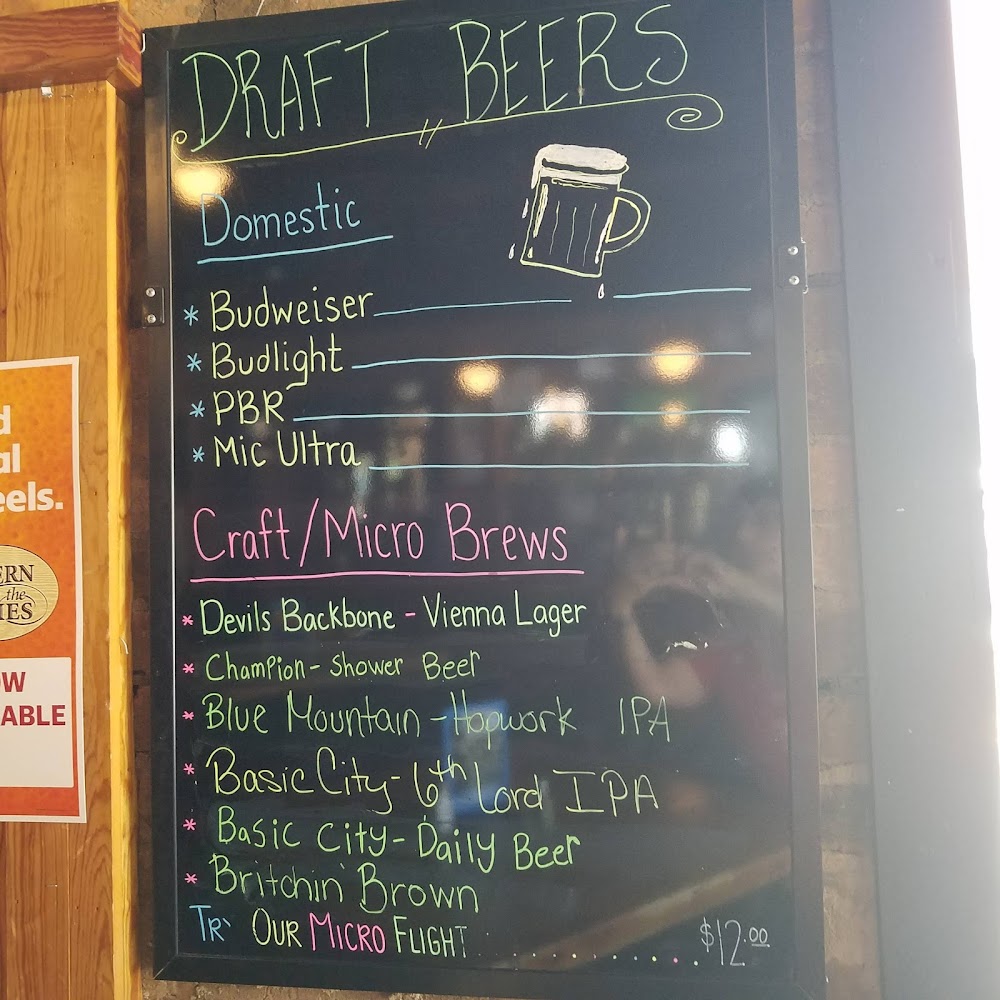 DRAFT BEERS
Domestic
* Budweiser
* Budlight
* PBR
* Mic Ultra
Craft/Micro Brews
* Devils Backbone - Vienna Lager
* Champion - Shower Beer
* Blue Mountain - Hopwork IPA
* Basic City - 6th Lord IPA
* Basic City - Daily Beer
* Britchin' Brown
TRY OUR MICRO FLIGHT ............ $12.00
d
al
eels.
ERN
the
IES
OW
ABLE